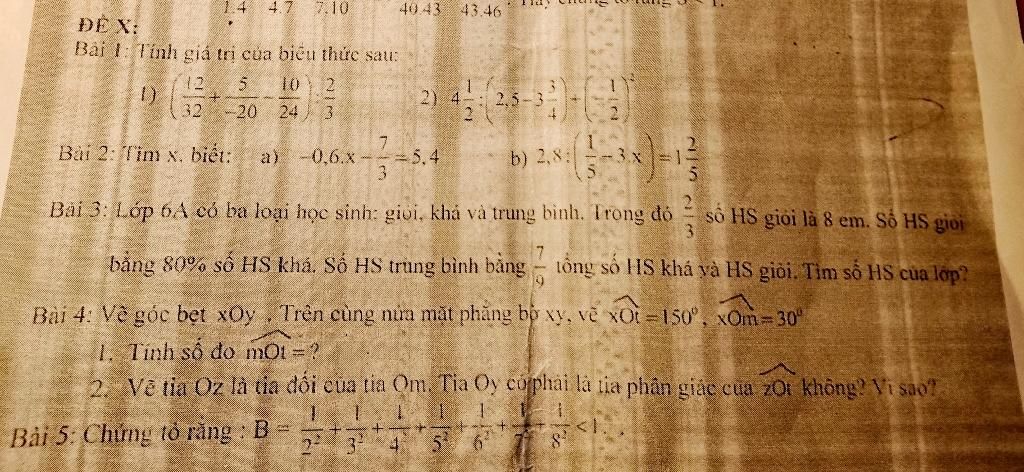 1.4 4.7 7.10 40.43 43.46
ĐỀ X:
Bài 1: Tính giá trị của biểu thức sau:
1) (12/32 + 5/-20 - 10/24) : 2/3 2) 4 1/2 : (2,5 - 3 3/4) + (-1/2)²
Bài 2: Tìm x, biết: a) -0,6.x - 7/3 = 5,4 b) 2,8 : (1/5 - 3.x) = 1 2/5
Bài 3: Lớp 6A có ba loại học sinh: giỏi, khá và trung bình. Trong đó 2/3 số HS giỏi là 8 em. Số HS giỏi
bằng 80% số HS khá. Số HS trung bình bằng 7/9 tổng số HS khá và HS giỏi. Tìm số HS của lớp?
Bài 4: Vẽ góc bẹt xOy . Trên cùng nửa mặt phẳng bờ xy, vẽ xOt = 150⁰, xOm = 30⁰
1. Tính số đo mOt = ?
2. Vẽ tia Oz là tia đối của tia Om. Tia Oy có phải là tia phân giác của zOt không? Vì sao?
Bài 5: Chứng tỏ rằng : B = 1/2² + 1/3² + 1/4² + 1/5² + 1/6² + 1/7² + 1/8² < 1 .